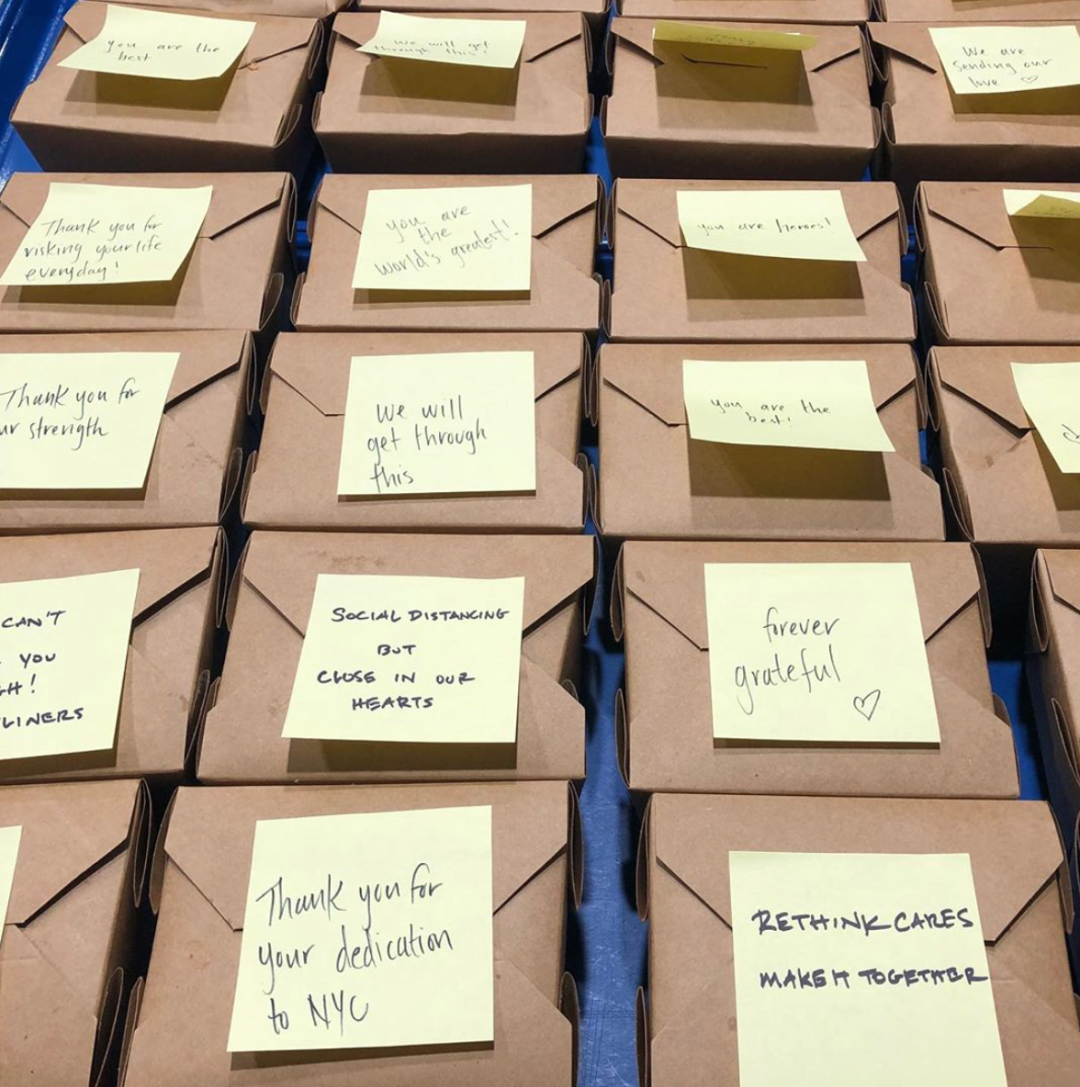 you are the
best
we will get
through this!
We are
sending our
love ♡
Thank you for
risking your life
everyday!
you are
the
world's greatest!
you are heroes!
Thank you for
ur strength
we will
get through
this
you are the
best!
CAN'T
YOU
GH!
LINERS
SOCIAL DISTANCING
BUT
CLOSE IN OUR
HEARTS
forever
grateful
♡
Thank you for
your dedication
to NYC
RETHINK CARES
MAKE IT TOGETHER